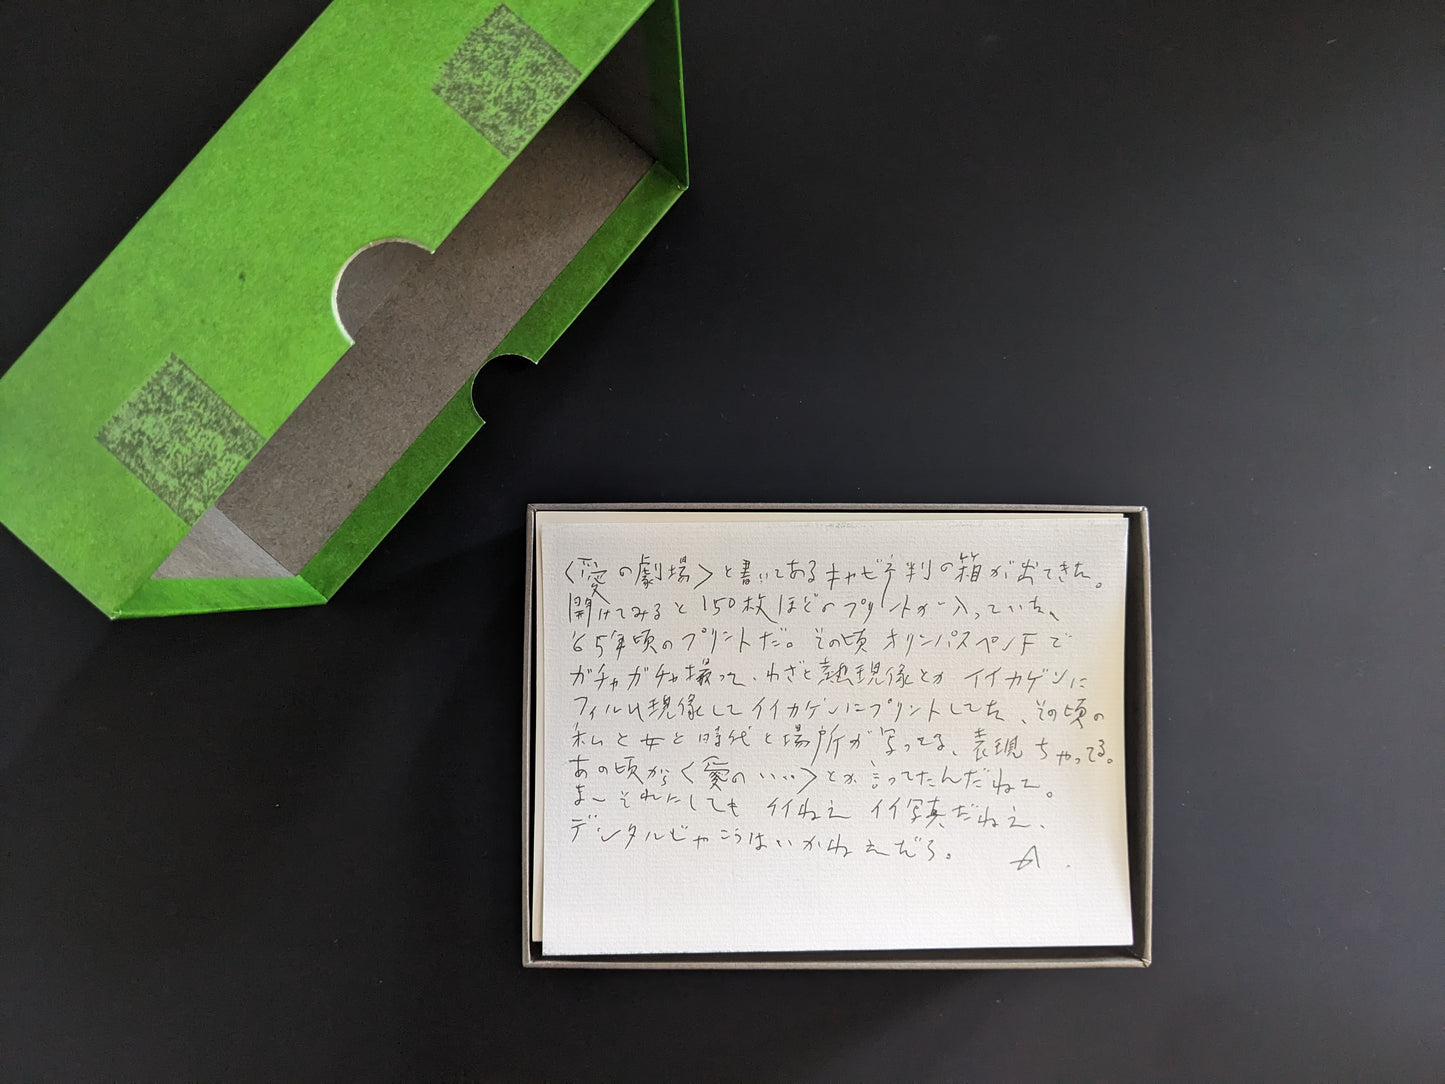 〈愛の劇場〉と書いてあるキャビネ判の箱が出てきた。
開けてみると150枚ほどのプリントが入っていた、
'65年頃のプリントだ。その頃オリンパスペンFで
ガチャガチャ撮って、わざと熱現像とかイイカゲンに
フィルム現像してイイカゲンにプリントしてた、その頃の
私と女と時代と場所が写ってる、表現ちゃってる。
あの頃から〈愛の
とか言ってたんだねェ。
まーそれにしてもイイねェイイ写真だねェ、
デジタルじゃこうはいかねェだろ。 A.